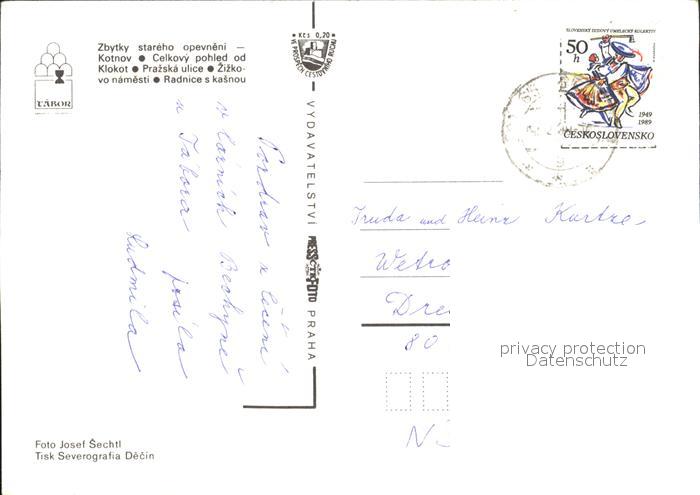 Zbytky starého opevnění —
Kotnov ● Celkový pohled od
Klokot ● Pražská ulice ● Žižko-
vo náměstí ● Radnice s kašnou
TÁBOR
Pozdrav z léčení
v Lázních Bechyně
u Tábora posílá
Ludmila
Foto Josef Šechtl
Tisk Severografia Děčín
Kčs 0,20
VE PROSPĚCH CESTOVNÍHO RUCHU
VYDAVATELSTVÍ PRESSFOTO PRAHA
ČTK
SLOVENSKÝ ĽUDOVÝ UMELECKÝ KOLEKTÍV
50 h
1949
1989
ČESKOSLOVENSKO
Truda und Heinz Kurtze
80
privacy protection
Datenschutz